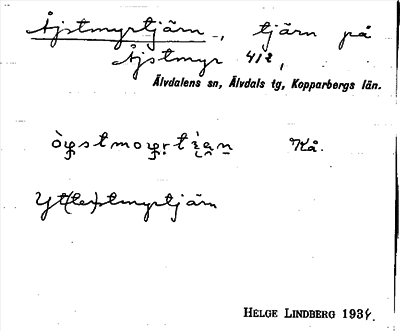 Åjstmyrtjärn -, tjärn på
Åjstmyr 4/2,
Älvdalens sn, Älvdals tg, Kopparbergs län.
Kå.
Yt(ter)stmyrtjärn
HELGE LINDBERG 1934.